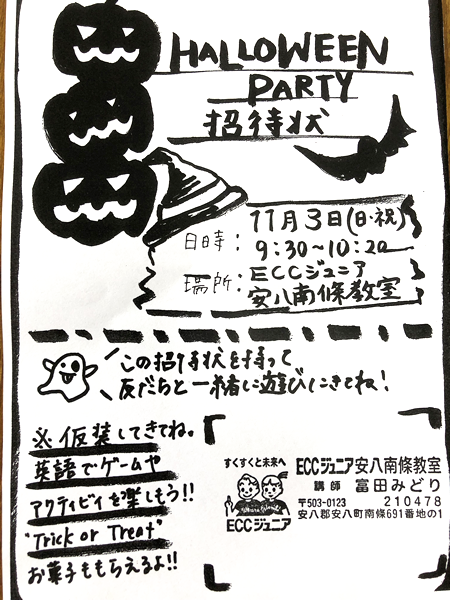 HALLOWEEN
PARTY
招待状
日時: 11月3日(日・祝)
9:30~10:20
場所: ECCジュニア
安八南條教室
この招待状を持って
友だちと一緒に遊びにきてね!
※仮装してきてね。
英語でゲームや
アクティビィを楽しもう!!
"Trick or Treat"
お菓子ももらえるよ!!
すくすくと未来へ
ECCジュニア
ECCジュニア安八南條教室
講師 富田みどり
〒503-0123 210478
安八郡安八町南條691番地の1